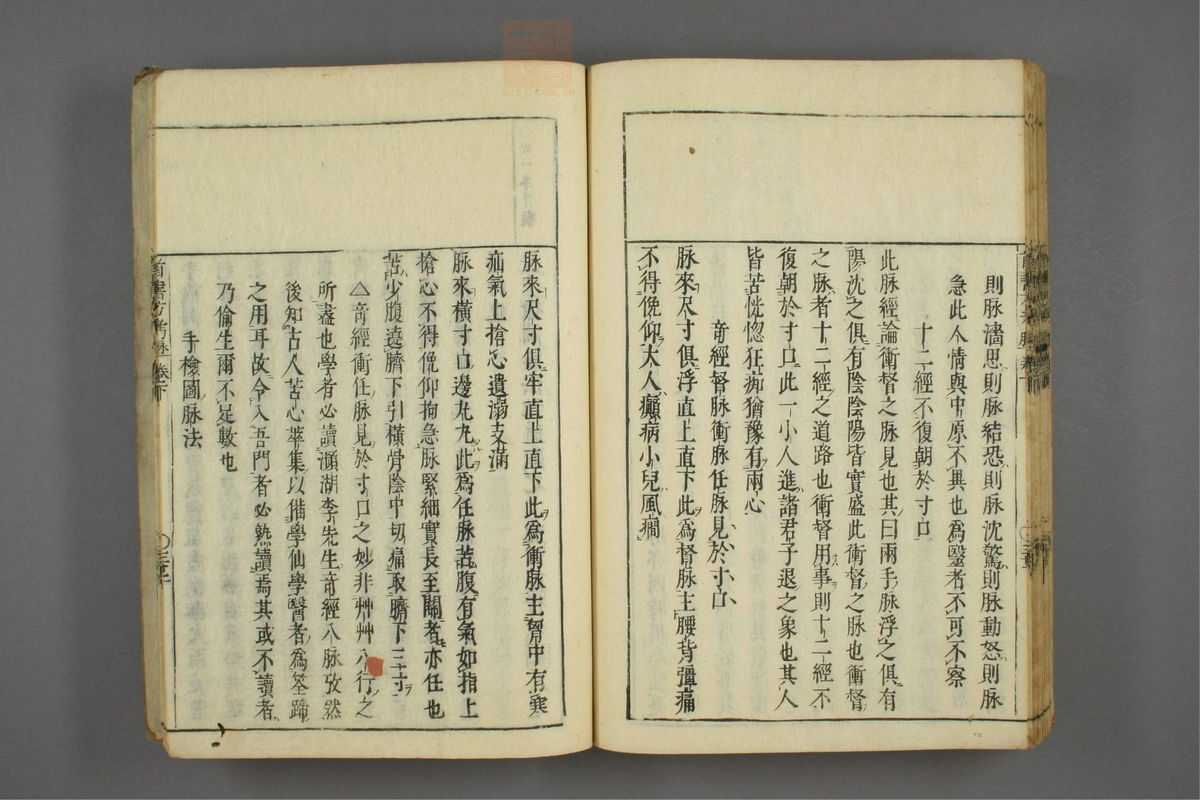 則脉濇思則脉結恐則脉沈驚則脉動怒則脉
急此人情與中原不異也為毉者不可不察
十二經不復朝於寸口
此脉經論衝督之脉見也其曰兩手脉浮之俱有
陽沈之俱有陰陰陽皆實盛此衝督之脉也衝督
之脉者十二經之道路也衝督用事則十二經不
復朝於寸口此一小人進諸君子退之象也其人
皆苦恍惚狂痴猶豫有兩心
竒經督脉衝脉任脉見於寸口
脉來尺寸俱浮直上直下此為督脉主腰背彊痛
不得俛仰大人癲病小兒風癎
脉來尺寸俱牢直上直下此為衝脉主胷中有寒
疝氣上搶心遺溺支滿
脉來橫寸口邊丸丸此為任脉苦腹有氣如指上
搶心不得俛仰拘急脉緊細實長至關者亦任也
苦少腹遶臍下引橫骨陰中切痛取臍下三寸
△竒經衝任脉見於寸口之妙非艸艸八行之
所盡也學者必讀瀕湖李先生竒經八脉攷然
後知古人苦心萃集以偕學仙學醫者為筌蹄
之用耳故令入吾門者必熟讀焉其或不讀者
乃偷生爾不足數也
手檢圖脉法
卷下